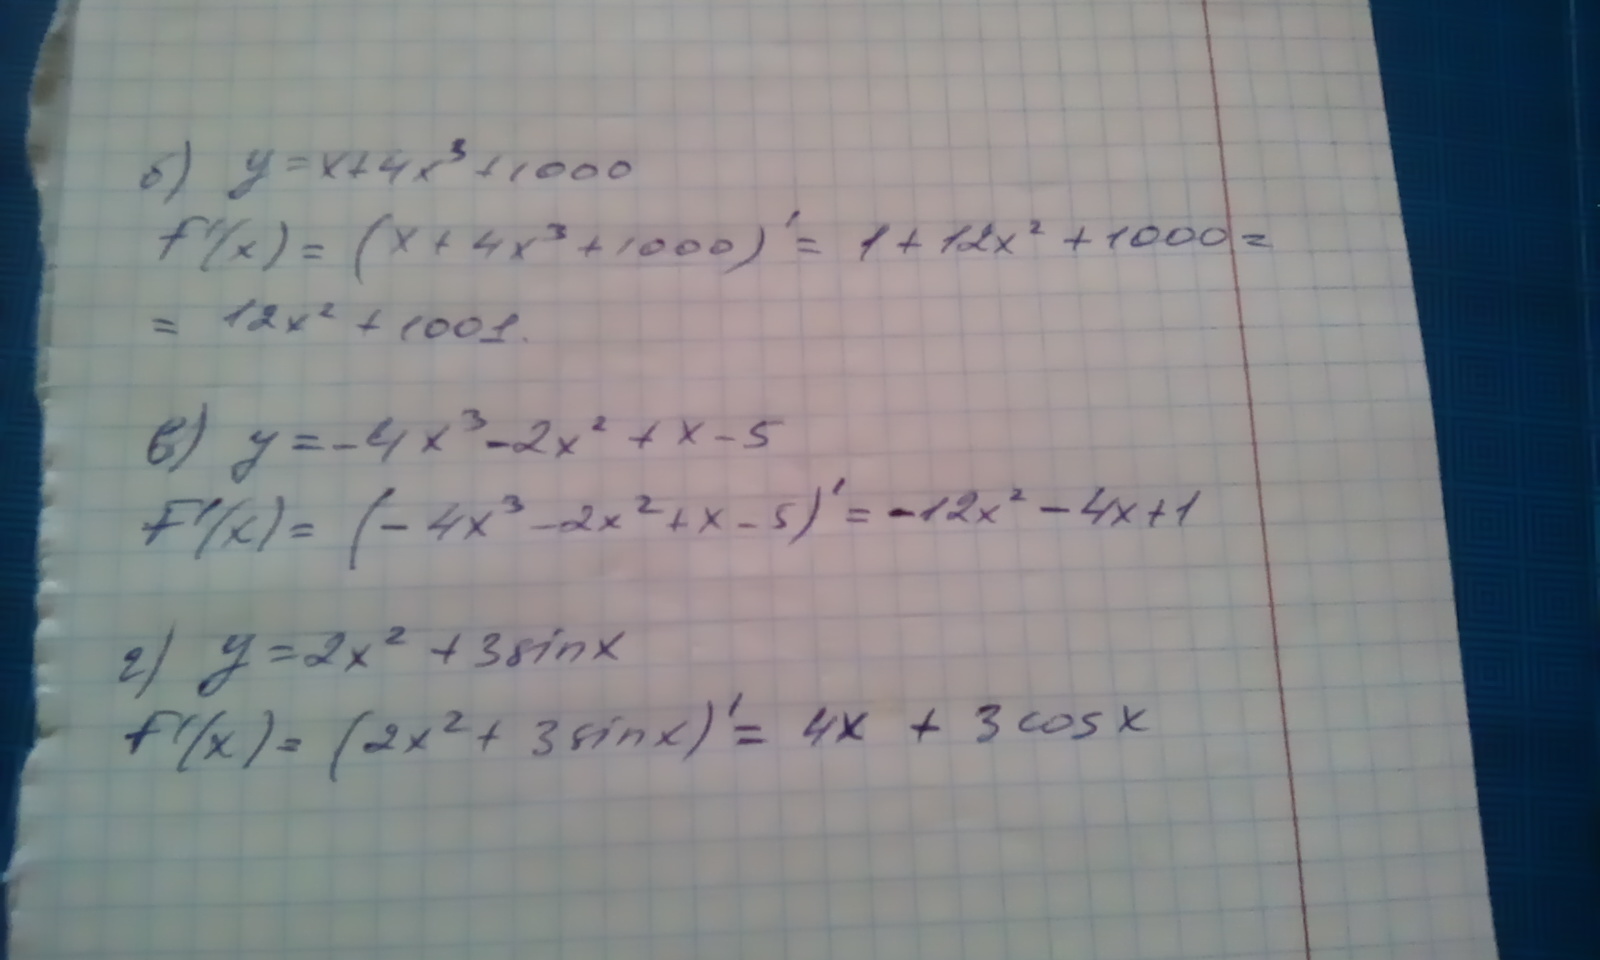 б) y = x + 4x³ + 1000
f'(x) = (x + 4x³ + 1000)' = 1 + 12x² + 1000 =
= 12x² + 1001.
в) y = -4x³ - 2x² + x - 5
f'(x) = (-4x³ - 2x² + x - 5)' = -12x² - 4x + 1
г) y = 2x² + 3sinx
f'(x) = (2x² + 3sinx)' = 4x + 3cosx